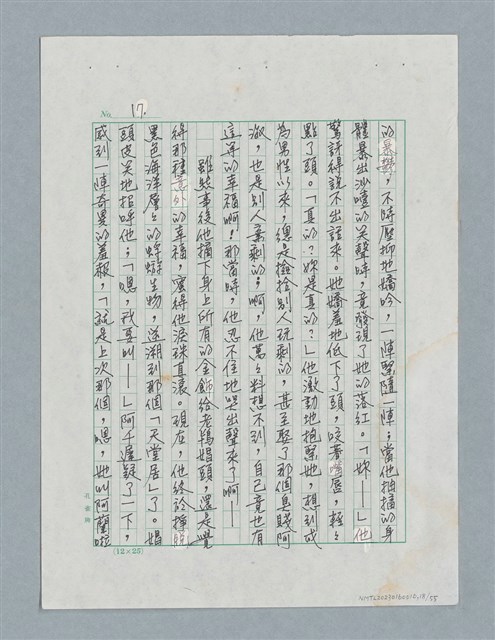 No. 17.
的暴響，不時壓抑地嬌吟，一陣緊隨一陣；當他抽搐的身
體暴出沙啞的笑聲時，竟發現了她的落紅。「妳——」他
驚訝得說不出話來。她嬌羞地低下了頭，咬著嘴唇，輕輕
點了頭。「真的？妳是真的？」他激動地抱緊她，想到成
為男性以來，總是撿拾別人玩剩的，甚至娶了那個臭賤阿
淑，也是別人棄剩的；啊，他萬々料想不到，自己竟也有
這等的幸福啊！那當時，他忍不住地哭出聲來了啊——
雖然事後他摘下身上所有的金飾給老鴇娼頭，還是覺
得那種意外的幸福，蜜得他淚珠直滾。現在，他終於擇
黑色海洋層々的蜉蝣生物，逐溯到那個「天堂居」了。娼
頭皮笑地招呼他；「嗯，我要叫——」阿千遲疑了一下，
感到一陣奇異的羞報，「就是上次那個，嗯，她叫阿蘭啦
(12×25)
NMTL20070160012,18/55